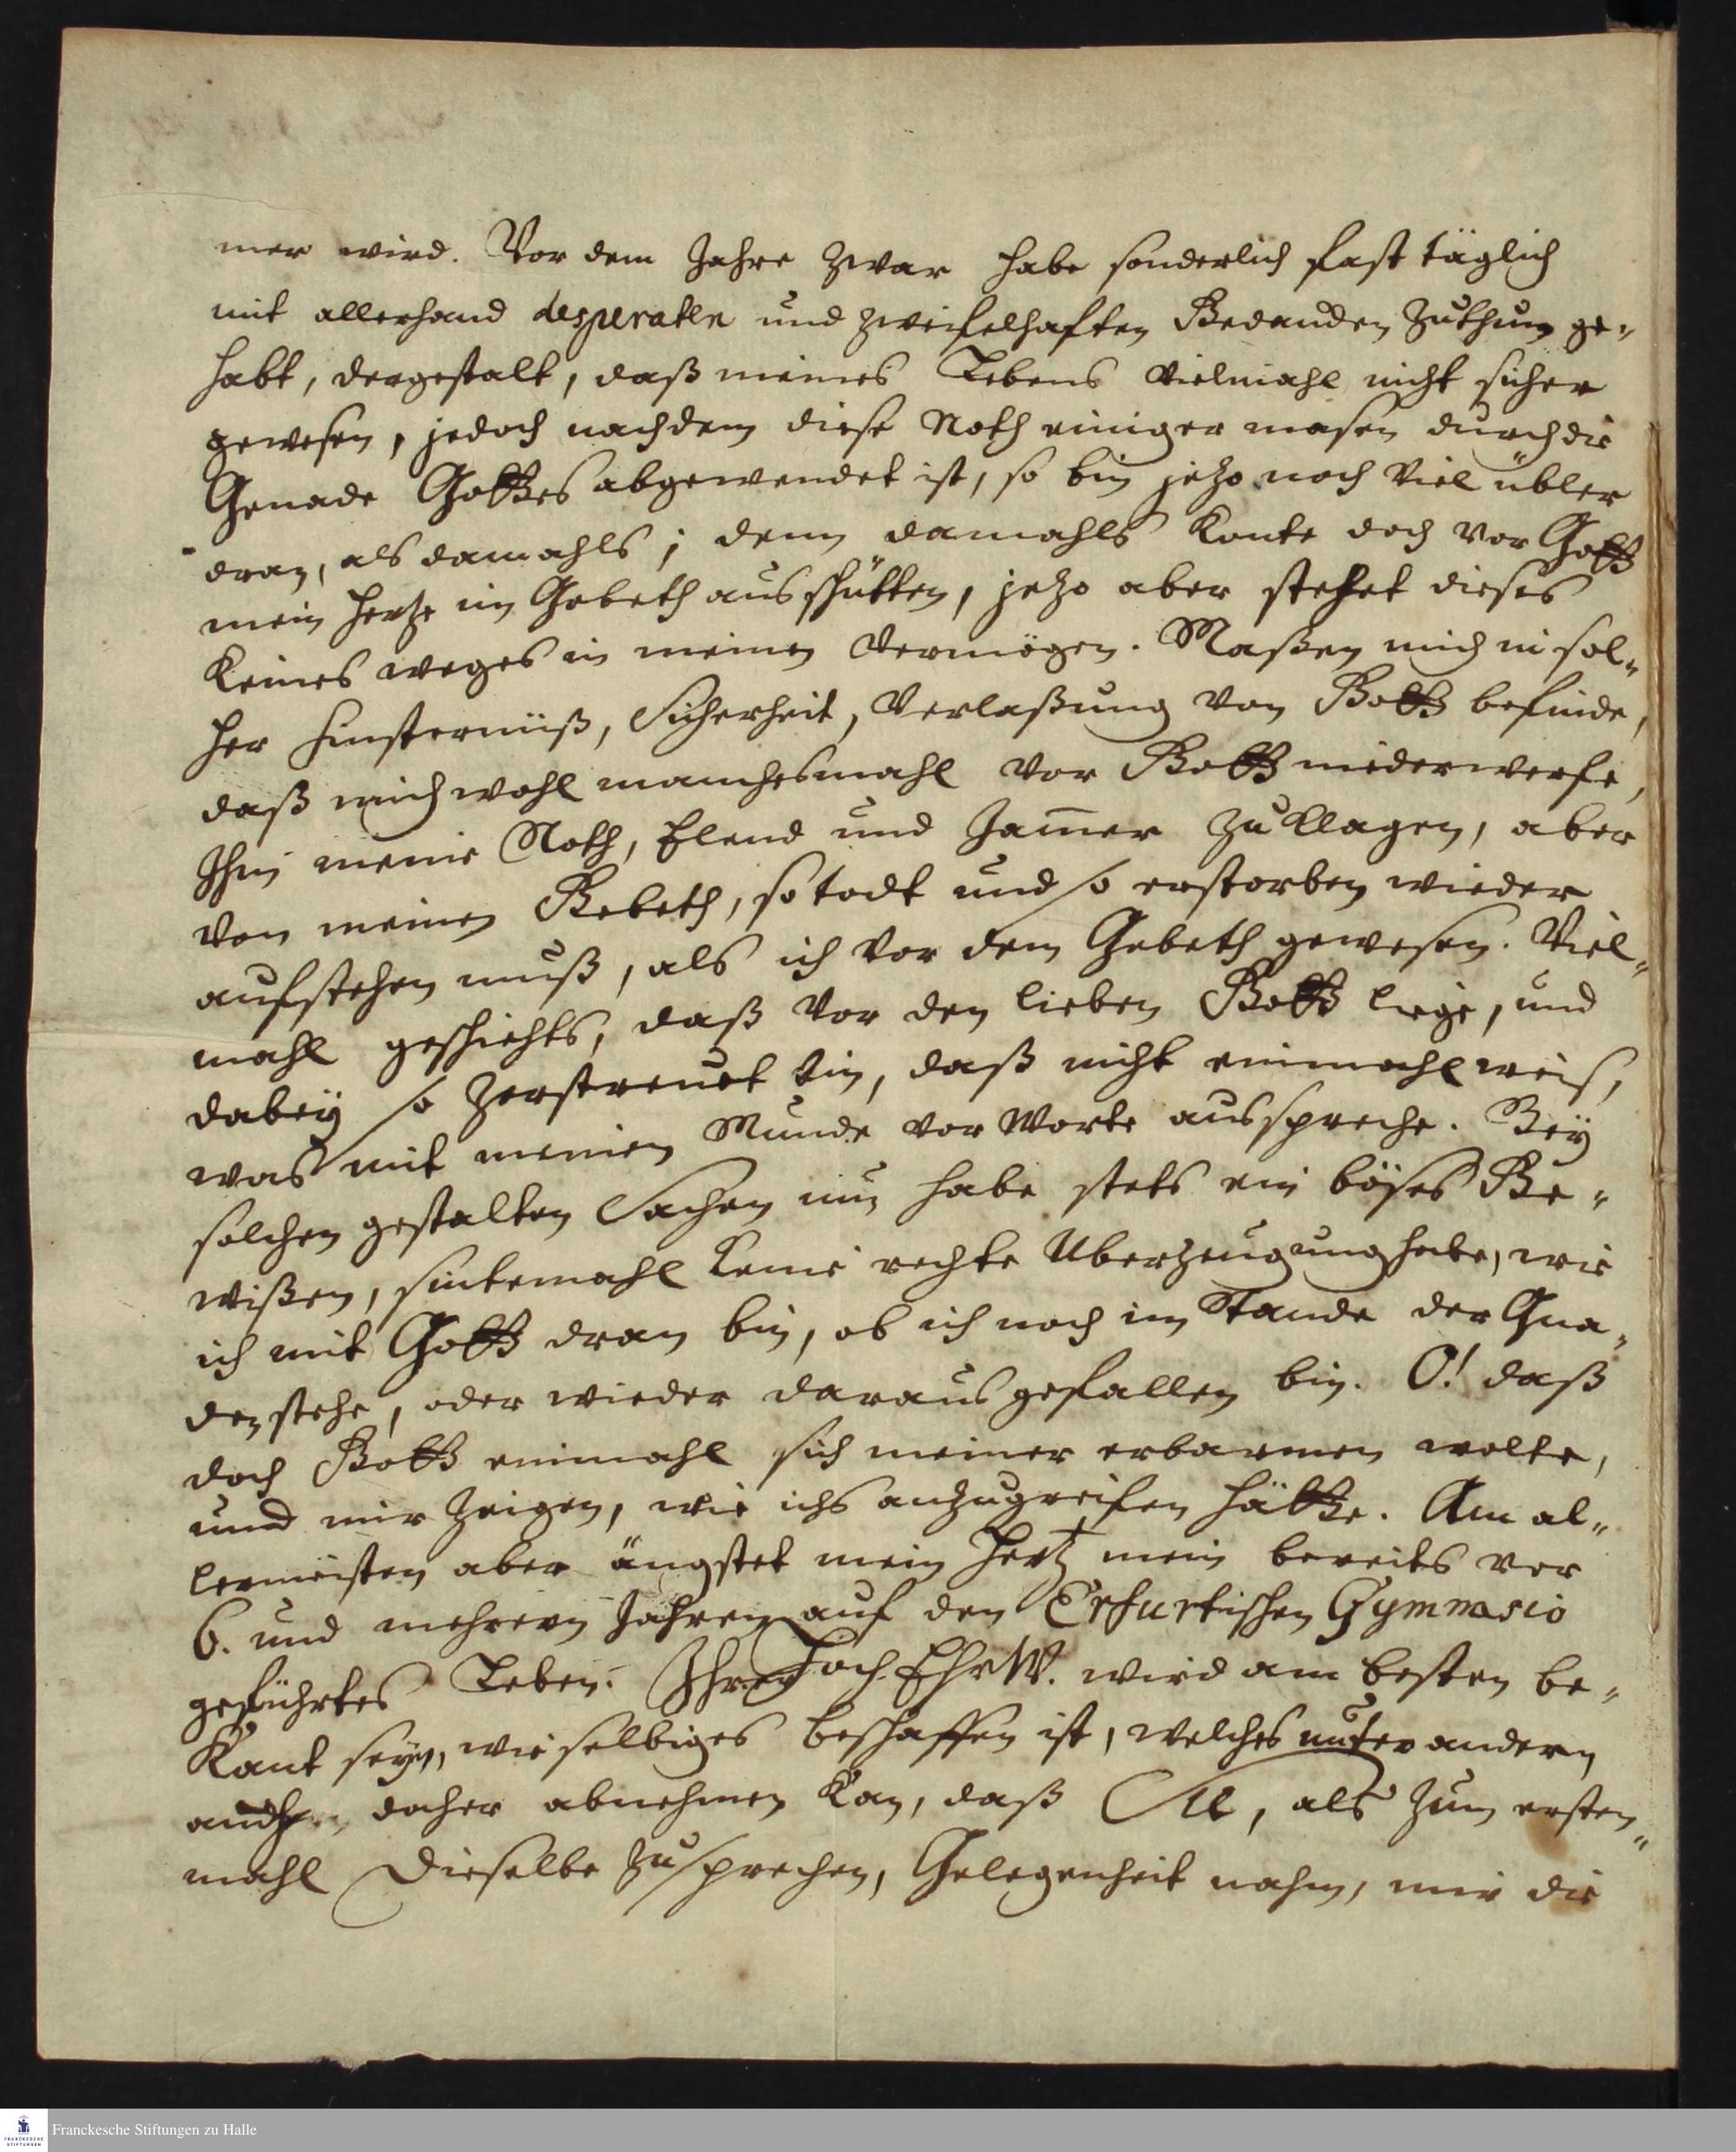 mer wird. Vor dem Jahre zwar habe sonderlich fast täglich
mit allerhand desperaten und zweifelhaften Gedancken zuthun ge-
habt, dergestalt, daß meines Lebens vielmahl nicht sicher
gewesen, jedoch nachdem diese Noth einiger masen durch die
Genade Gottes abgewendet ist, so bin jezo noch viel übler
dran, als damahls; denn damahls konte doch vor Gott
mein Hertze im Gebeth ausschütten, jezo aber stehet dieses
keines weges in meinen Vermögen. Maßen mich in sol-
cher Finsternüß, Sicherheit, Verlaßung von Gott befinde,
daß mich wohl manchesmahl vor Gott niederwerfe,
Ihm meine Noth, Elend und Jam̄er zu klagen, aber
von meinen Gebeth, so todt und so erstorben wieder
aufstehen muß, als ich vor dem Gebeth gewesen. Viel-
mahl geschichts, daß vor den lieben Gott liege, und
dabey so zerstreuet bin, daß nicht einmahl weis,
was mit meinen Munde vor Worte ausspreche. Bey
solchen gestalten Sachen nun habe stets ein böses Ge-
wißen, sintemahl keine rechte Uberzeugung habe, wie
ich mit Gott dran bin, ob ich noch im Stande der Gna-
den stehe, oder wieder daraus gefallen bin. O! daß
doch Gott einmahl sich meiner erbarmen wolte,
und mir zeigen, wie ichs anzugreifen hätte. Am al-
lermeisten aber ängstet mein Hertz mein bereits vor
6. und mehrern Jahren auf den Erfurtischen Gymnasio
geführtes Leben. Ihrer Hoch. EhrW. wird am besten be-
kant seyn, wie selbiges beschaffen ist, welches unter andern
auch daher abnehmen kan, daß Sie, als zum ersten-
mahl Dieselbe zu sprechen, Gelegenheit nahm, mir die
Franckesche Stiftungen zu Halle
FRANCKESCHE
STIFTUNGEN